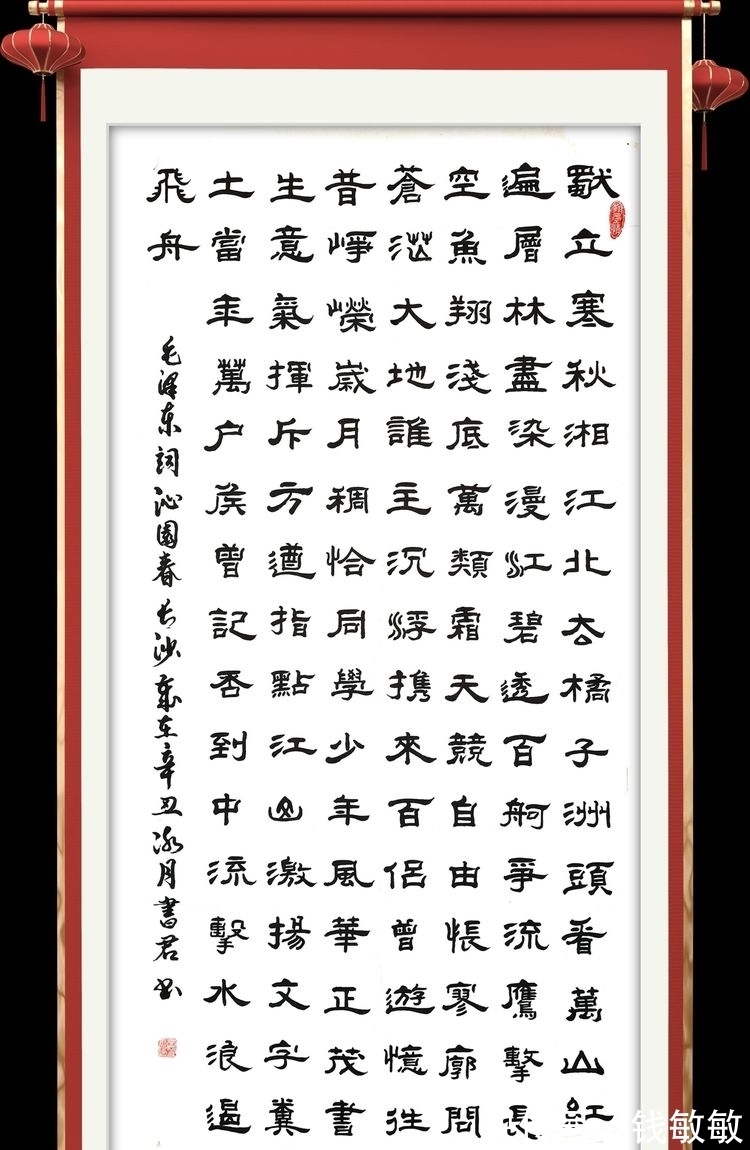 獨立寒秋湘江北去橘子洲頭看萬山紅
遍層林盡染漫江碧透百舸爭流鷹擊長
空魚翔淺底萬類霜天競自由悵寥廓問
蒼茫大地誰主沉浮携來百侣曾遊憶往
昔崢嶸歲月稠恰同學少年風華正茂書
生意氣揮斥方遒指點江山激揚文字糞
土當年萬户侯曾記否到中流擊水浪遏
飛舟
毛泽东詞沁園春长沙歲在辛丑冰月書君书
钱敏敏